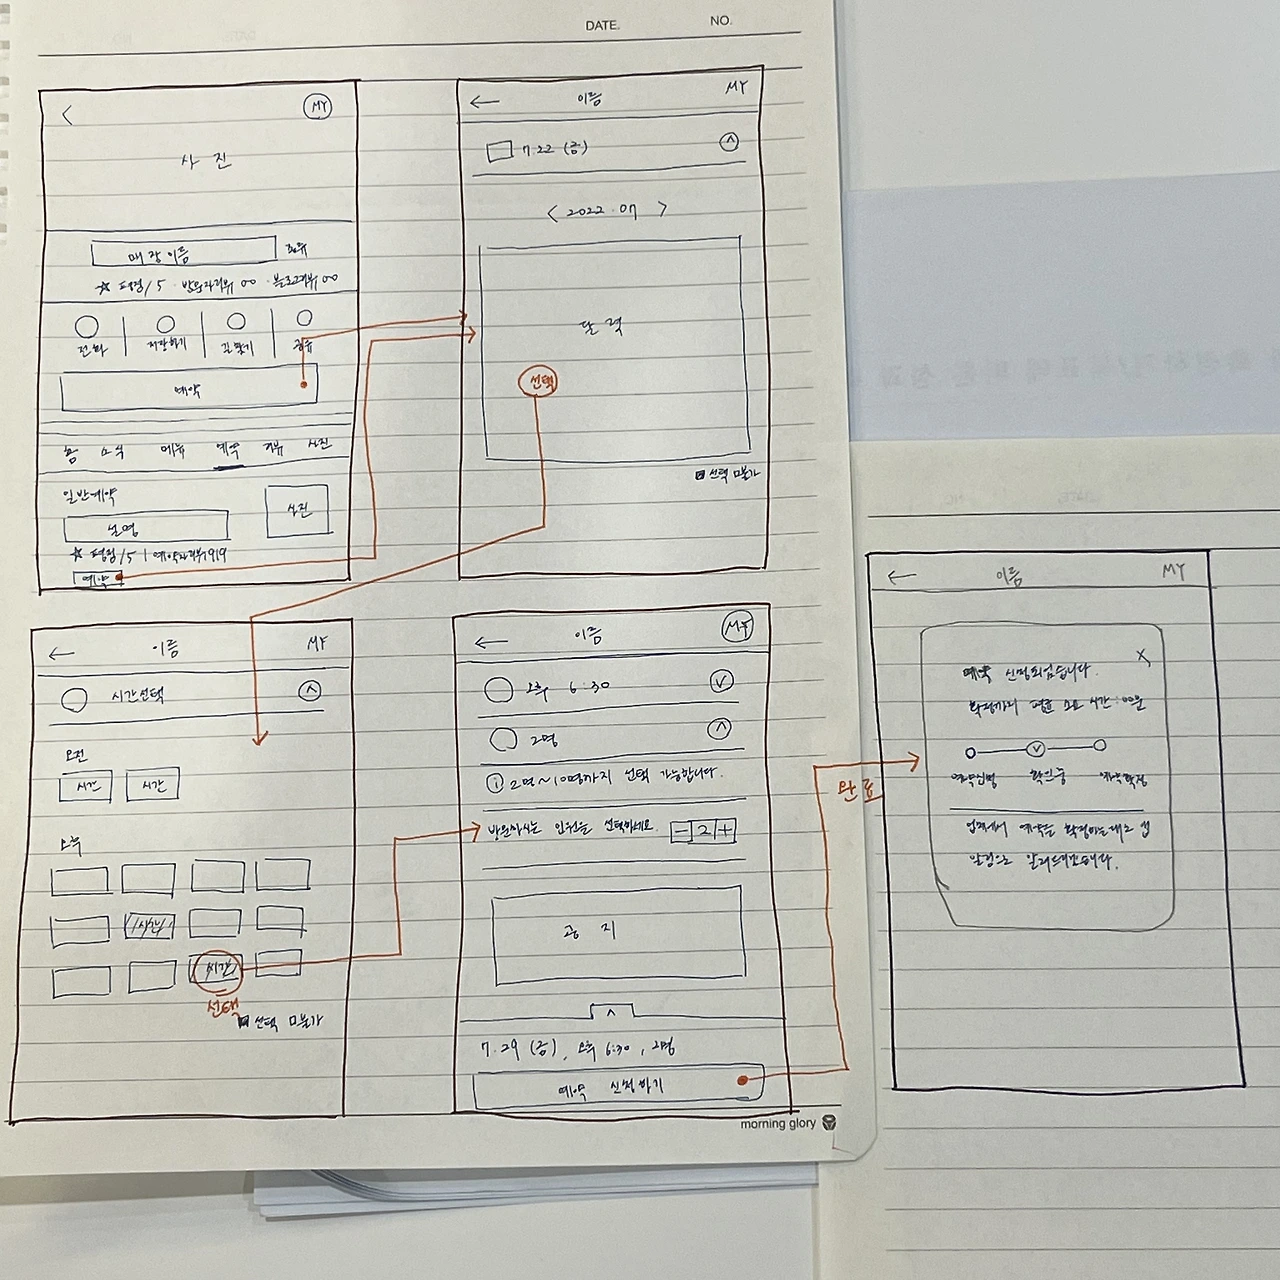 DATE.
NO.
< MY
사 진
매장이름
☆ 평점/5 · 방문자리뷰 00 · 블로그리뷰 00
전화 저장하기 길찾기 공유
예약
홈 소식 메뉴 예약 리뷰 사진
일반예약
설명
사진
☆ 평점/5 | 예약자리뷰 919
예약
← 이름 MY
7.22 (금) ^
< 2022.07 >
달력
선택
선택 모불가
← 이름 MY
시간선택 ^
오전
시간 시간
오후
시간
시간
선택
선택 모불가
← 이름 MY
오후 6:30 v
2명 ^
ⓘ 2명~10명까지 선택 가능합니다.
방문하시는 인원을 선택하세요. - 2 +
공 지
^
7.29 (금), 오후 6:30, 2명
예약 신청하기
morning glory
완료
← 이름 MY
X
예약 신청되었습니다.
확정까지 평균 소요 시간 : 00분
v
예약신청 확인중 예약확정
업체에서 예약을 확정하는대로
알림으로 알려드리겠습니다.